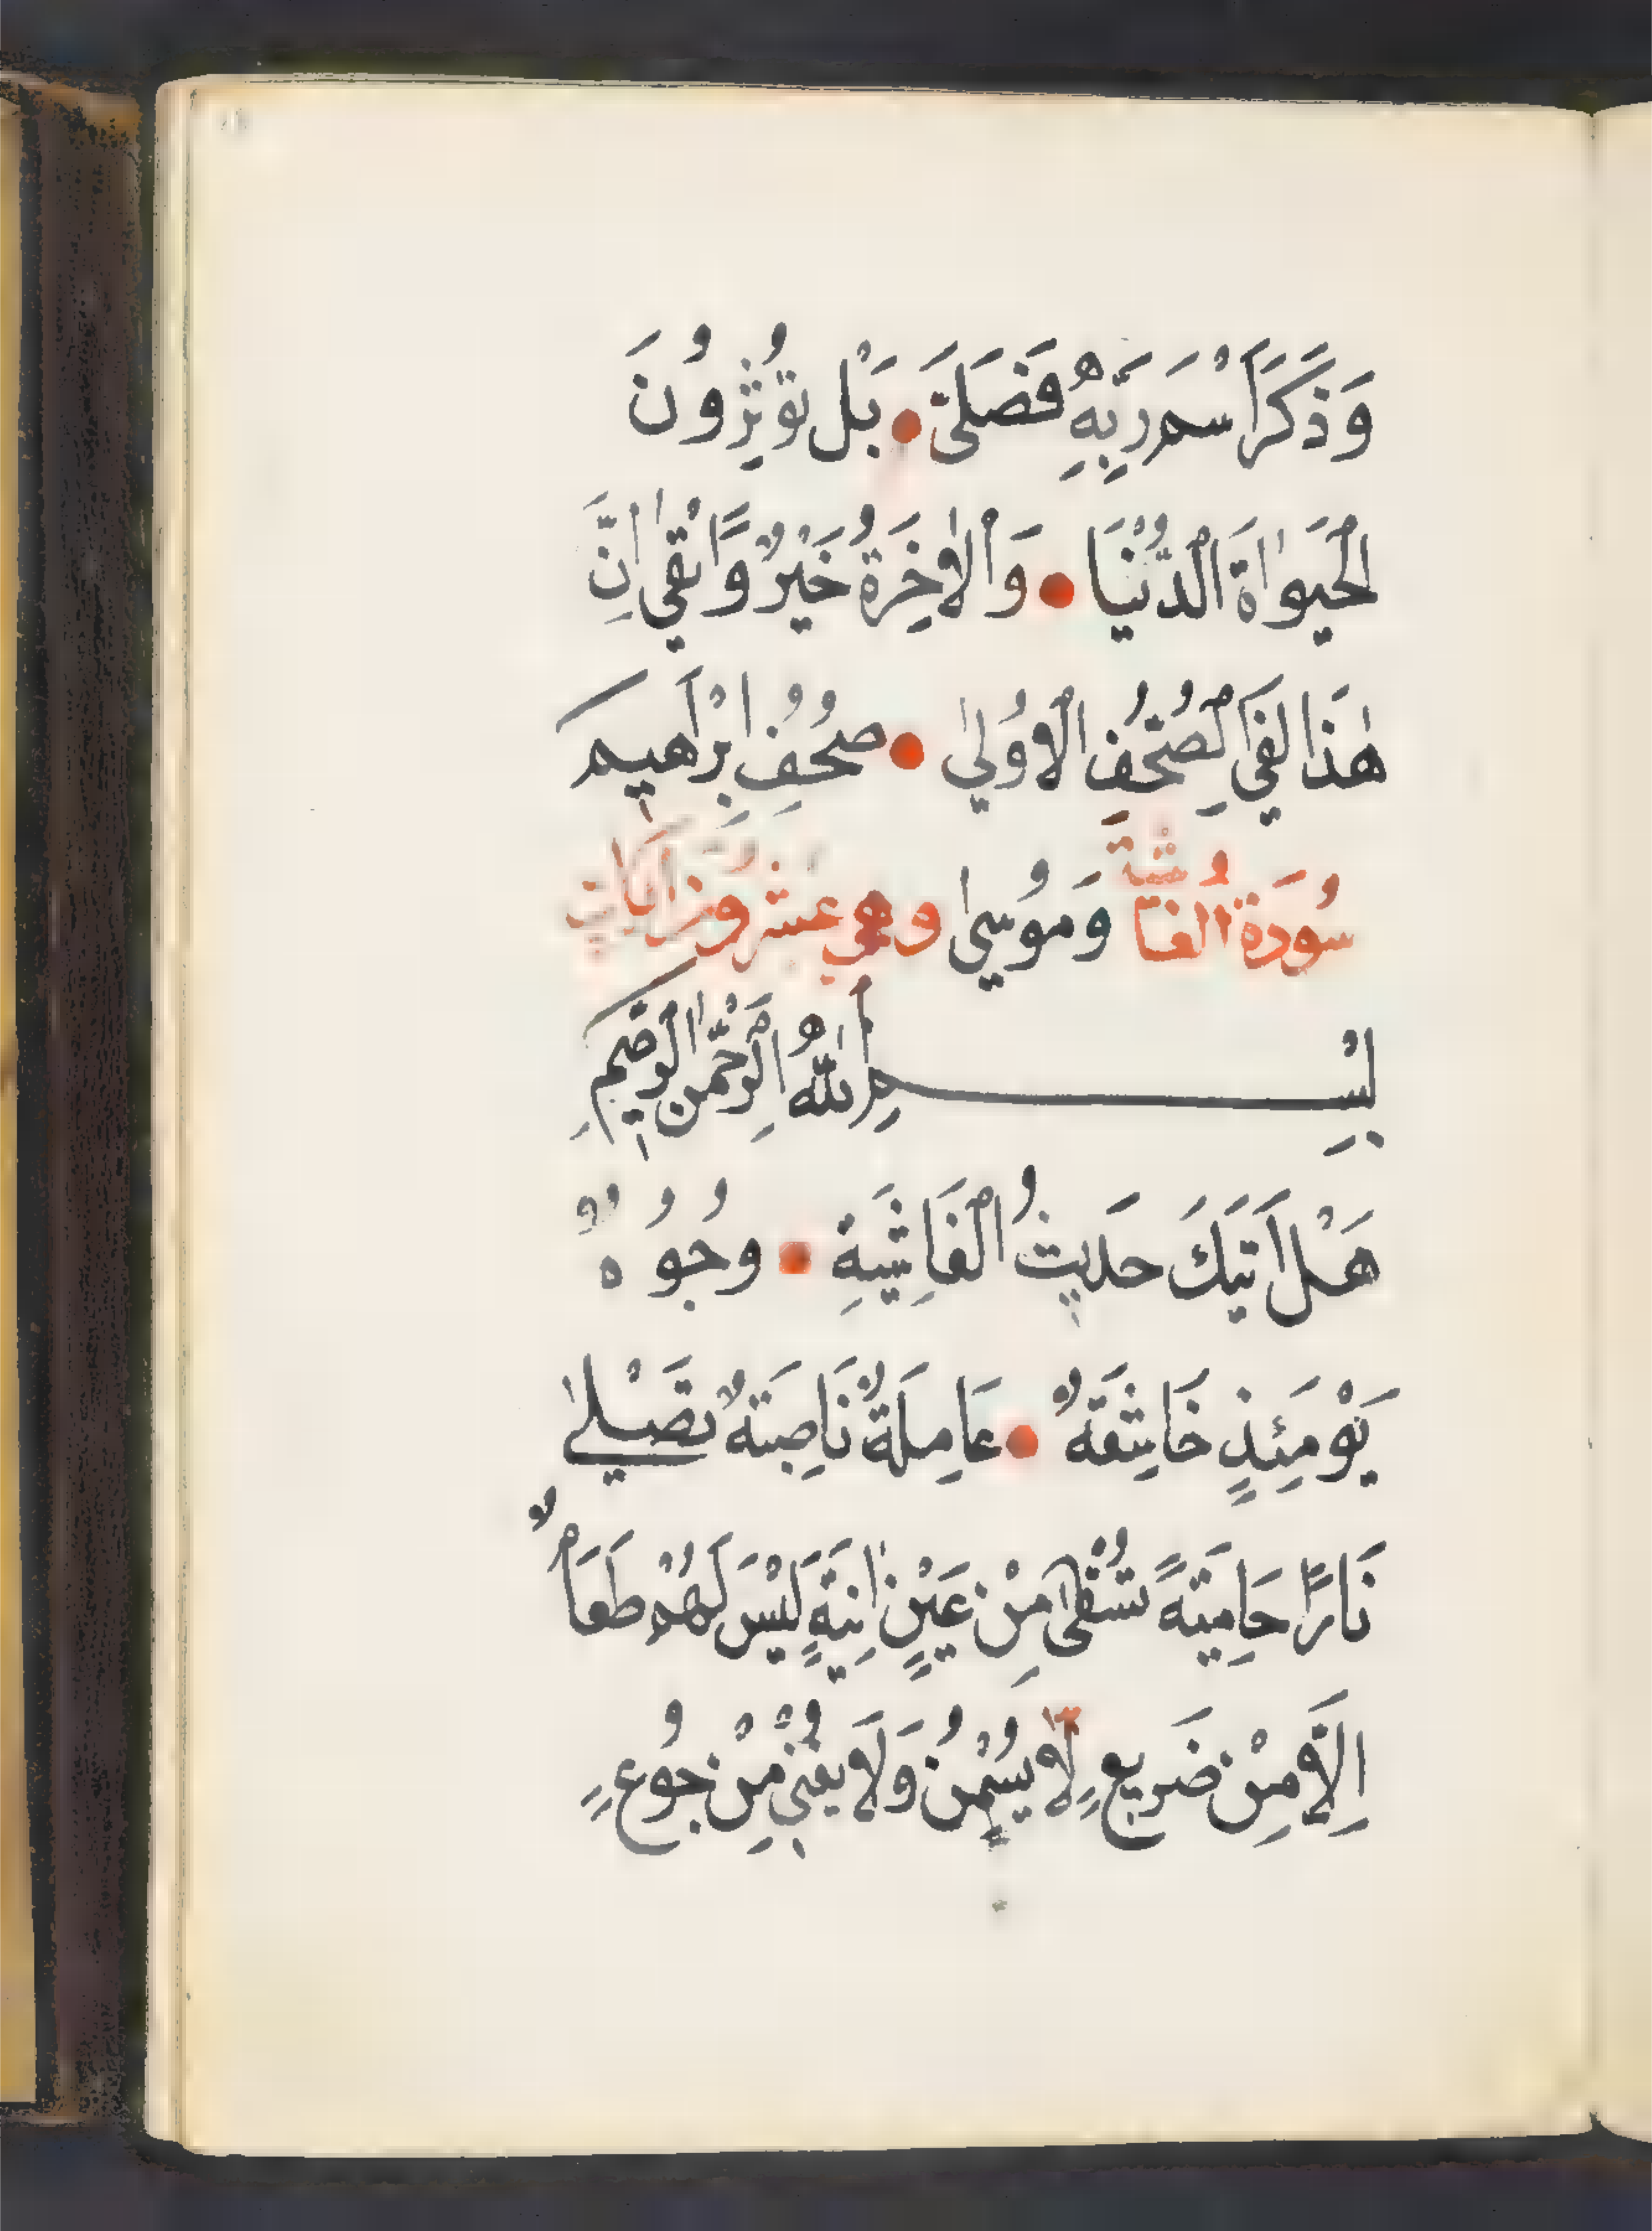 وَذَكَرَ اسْمَ رَبِّهٖ فَصَلّٰىَ • بَلْ تُوْثِرُونَ
الْحَيَوٰاةَ الدُّنْيَا • وَالْاٰخِرَةُ خَيْرٌ وَّاَبْقٰى اِنَّ
هٰذَا لَفِي الصُّحُفِ الْاُوْلٰى • صُحُفِ اِبْرَاهِيمَ
سُورَةُ الْغَاشِيَةِ وَمُوسٰى وهي عشرون اٰيَاتٍ
بِسْمِ اللّٰهِ الرَّحْمٰنِ الرَّحِيمِ
هَلْ اَتٰيكَ حَدِيثُ الْغَاشِيَةِ • وُجُوهٌ
يَوْمَئِذٍ خَاشِعَةٌ • عَامِلَةٌ نَاصِبَةٌ تَصْلٰى
نَارًا حَامِيَةً تُسْقٰى مِنْ عَيْنٍ اٰنِيَةٍ لَيْسَ لَهُمْ طَعَامٌ
اِلَّا مِنْ ضَرِيعٍ لَا يُسْمِنُ وَلَا يُغْنِي مِنْ جُوعٍ